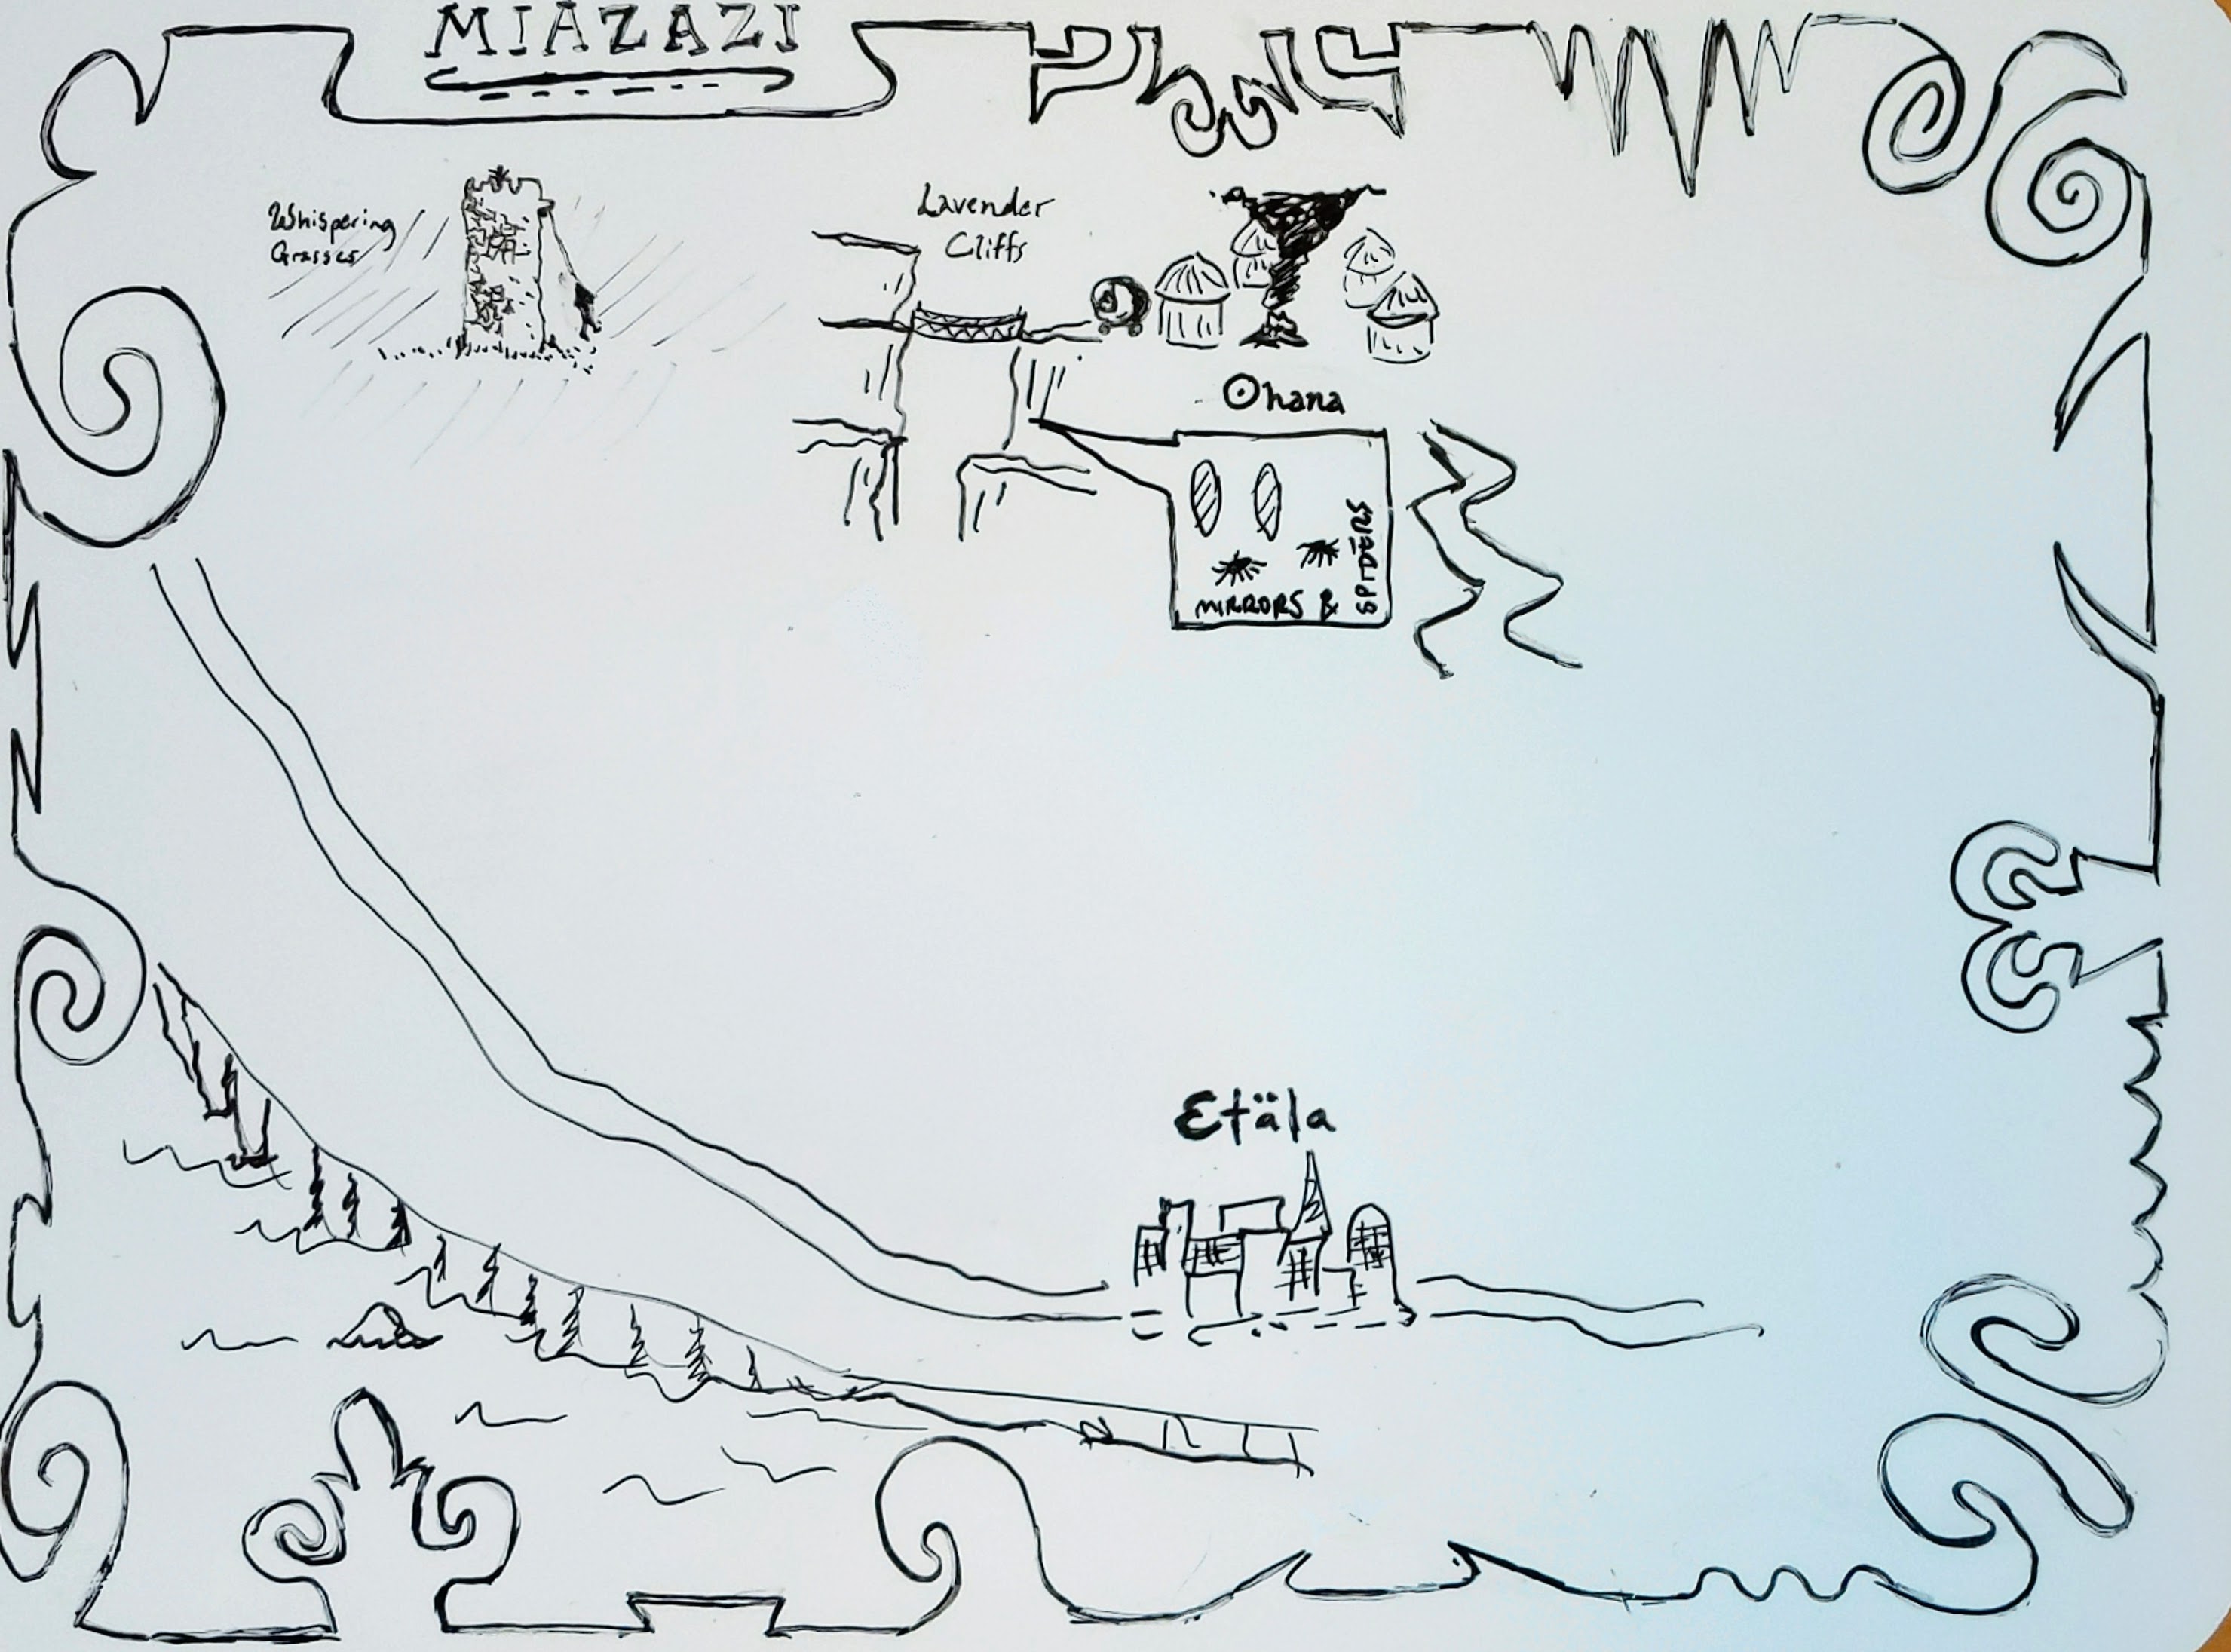 MIAZAZI
Whispering
Grasses
Lavender
Cliffs
Ohana
MIRRORS &
SPIDERS
Etäla